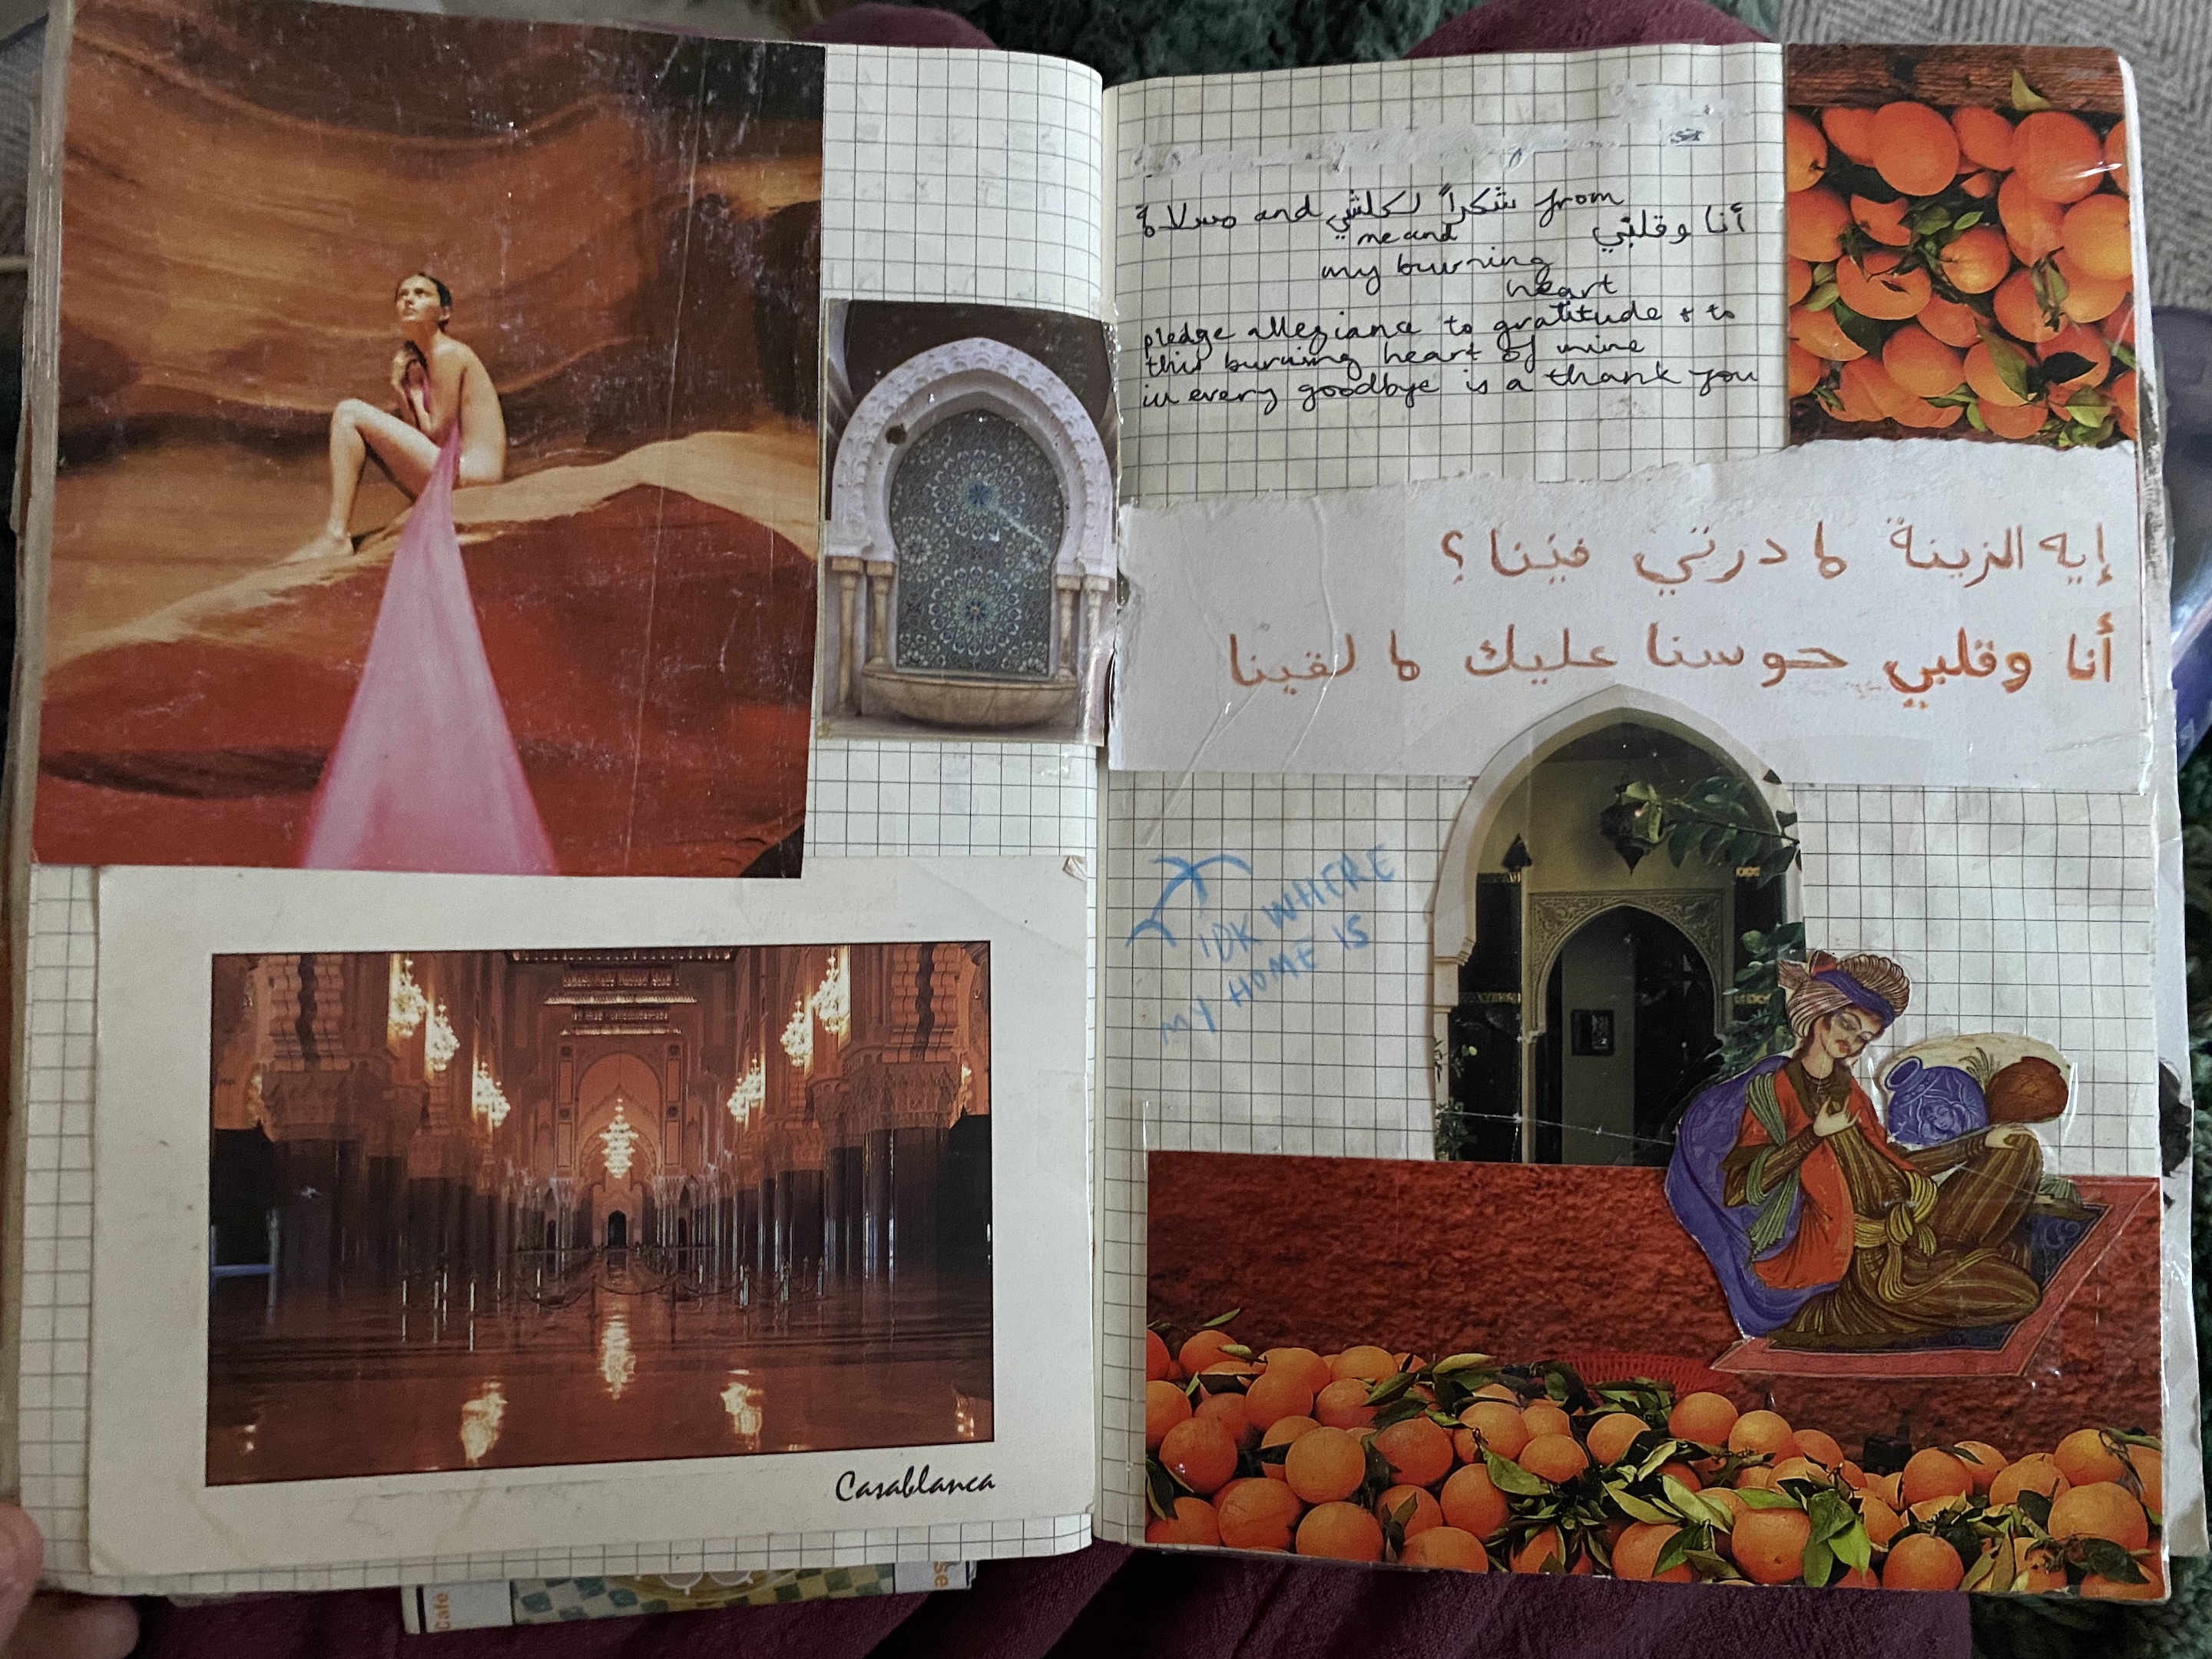 Casablanca
مسلامة and شكراً لكلشي from
أنا وقلبي
me and
my burning
heart
pledge allegiance to gratitude & to
this burning heart of mine
in every goodbye is a thank you
إيه الزينة ما درتي فينا؟
أنا وقلبي حوسنا عليك ما لقينا
IDK WHERE
MY HOME IS
Café